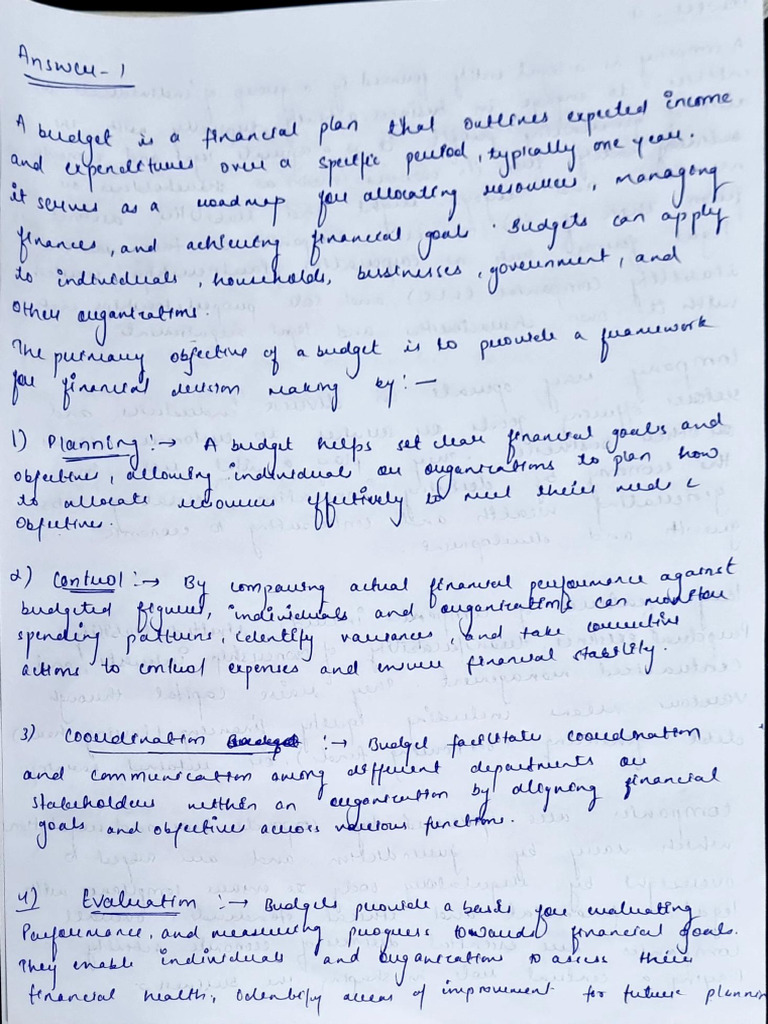 Answer - 1
A budget is a financial plan that outlines expected income
and expenditures over a specific period, typically one year.
it serves as a roadmap for allocating resources, managing
finances, and achieving financial goals. Budgets can apply
to individuals, households, businesses, government, and
other organizations.
The primary objective of a budget is to provide a framework
for financial decision making by : —
1) Planning :→ A budget helps set clear financial goals and
objectives, allowing individual or organizations to plan how
to allocate resources effectively to meet their needs &
objectives.
2) Control :→ By comparing actual financial performance against
budgeted figures, individuals and organizations can monitor
spending patterns, identify variances, and take corrective
actions to control expenses and ensure financial stability.
3) Coordination :→ Budget facilitate coordination
and communication among different departments or
stakeholders within an organization by aligning financial
goals and objective across various functions.
4) Evaluation :→ Budgets provide a basis for evaluating
Performance, and measuring progress towards financial goals.
They enable individuals and organization to assess their
financial health, identify areas of improvement for future planning